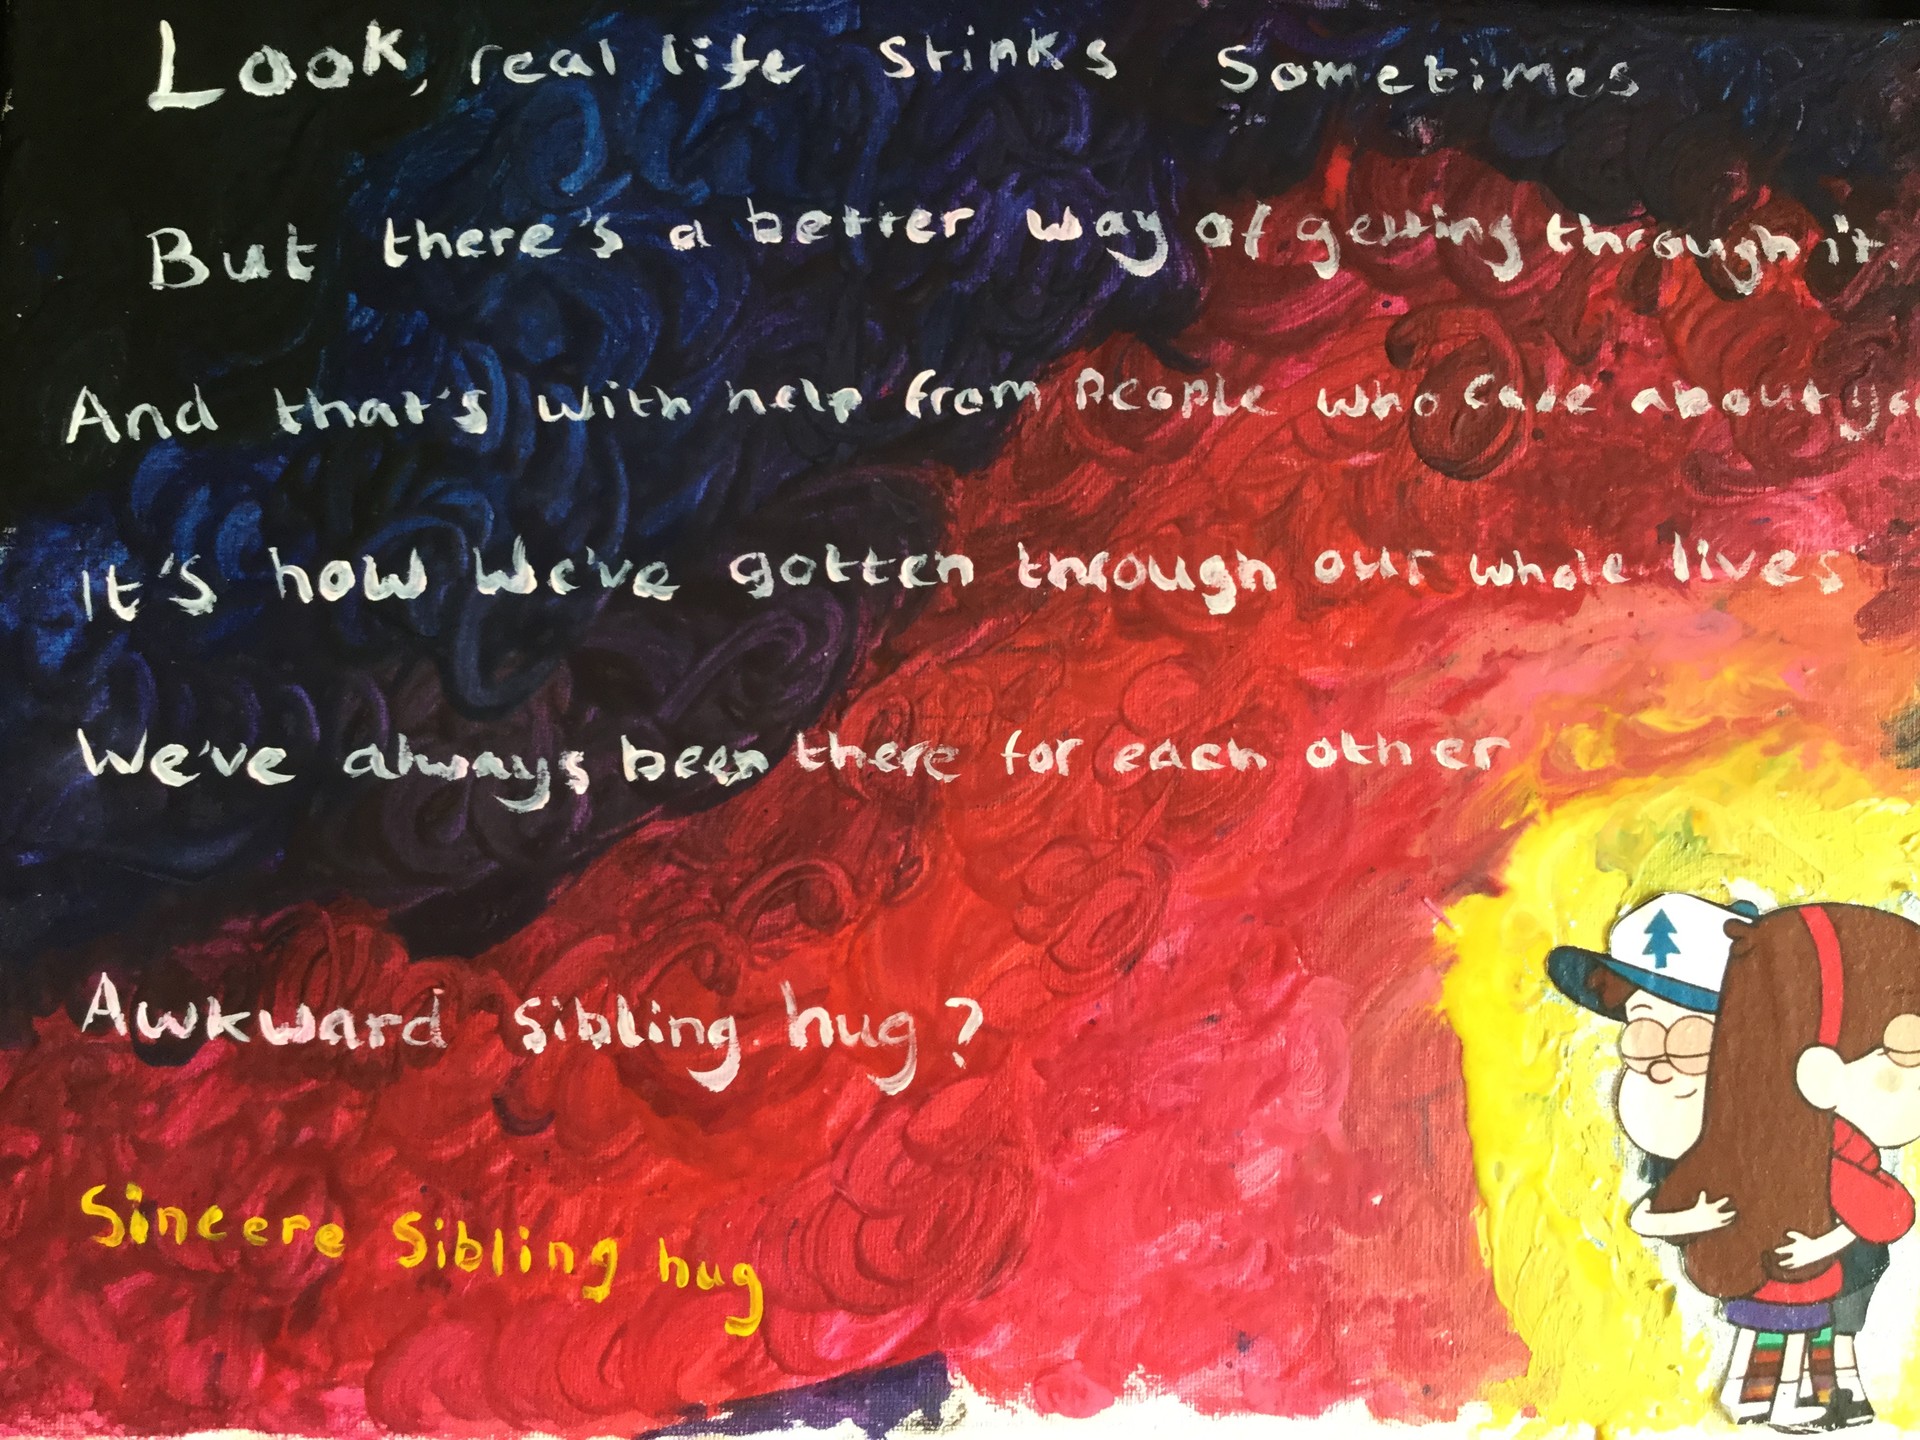 Look, real life stinks Sometimes
But there's a better way of getting through it.
And that's with help from People who Care about yo
It's how We've gotten through our whole lives
We've always been there for each other
Awkward sibling hug?
Sincere Sibling hug